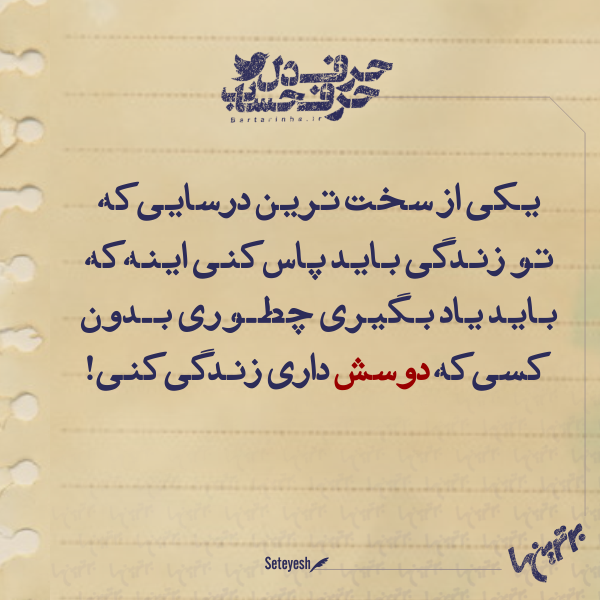 حرف دل
حرف حساب
Bartarinha.ir
یکی از سخت ترین درسایی که،
تو زندگی باید پاس کنی اینه، که،
باید یاد بگیری چطوری بدون
کسی که، دوسش داری زندگی کنی!
Seteyesh
برترین‌ها